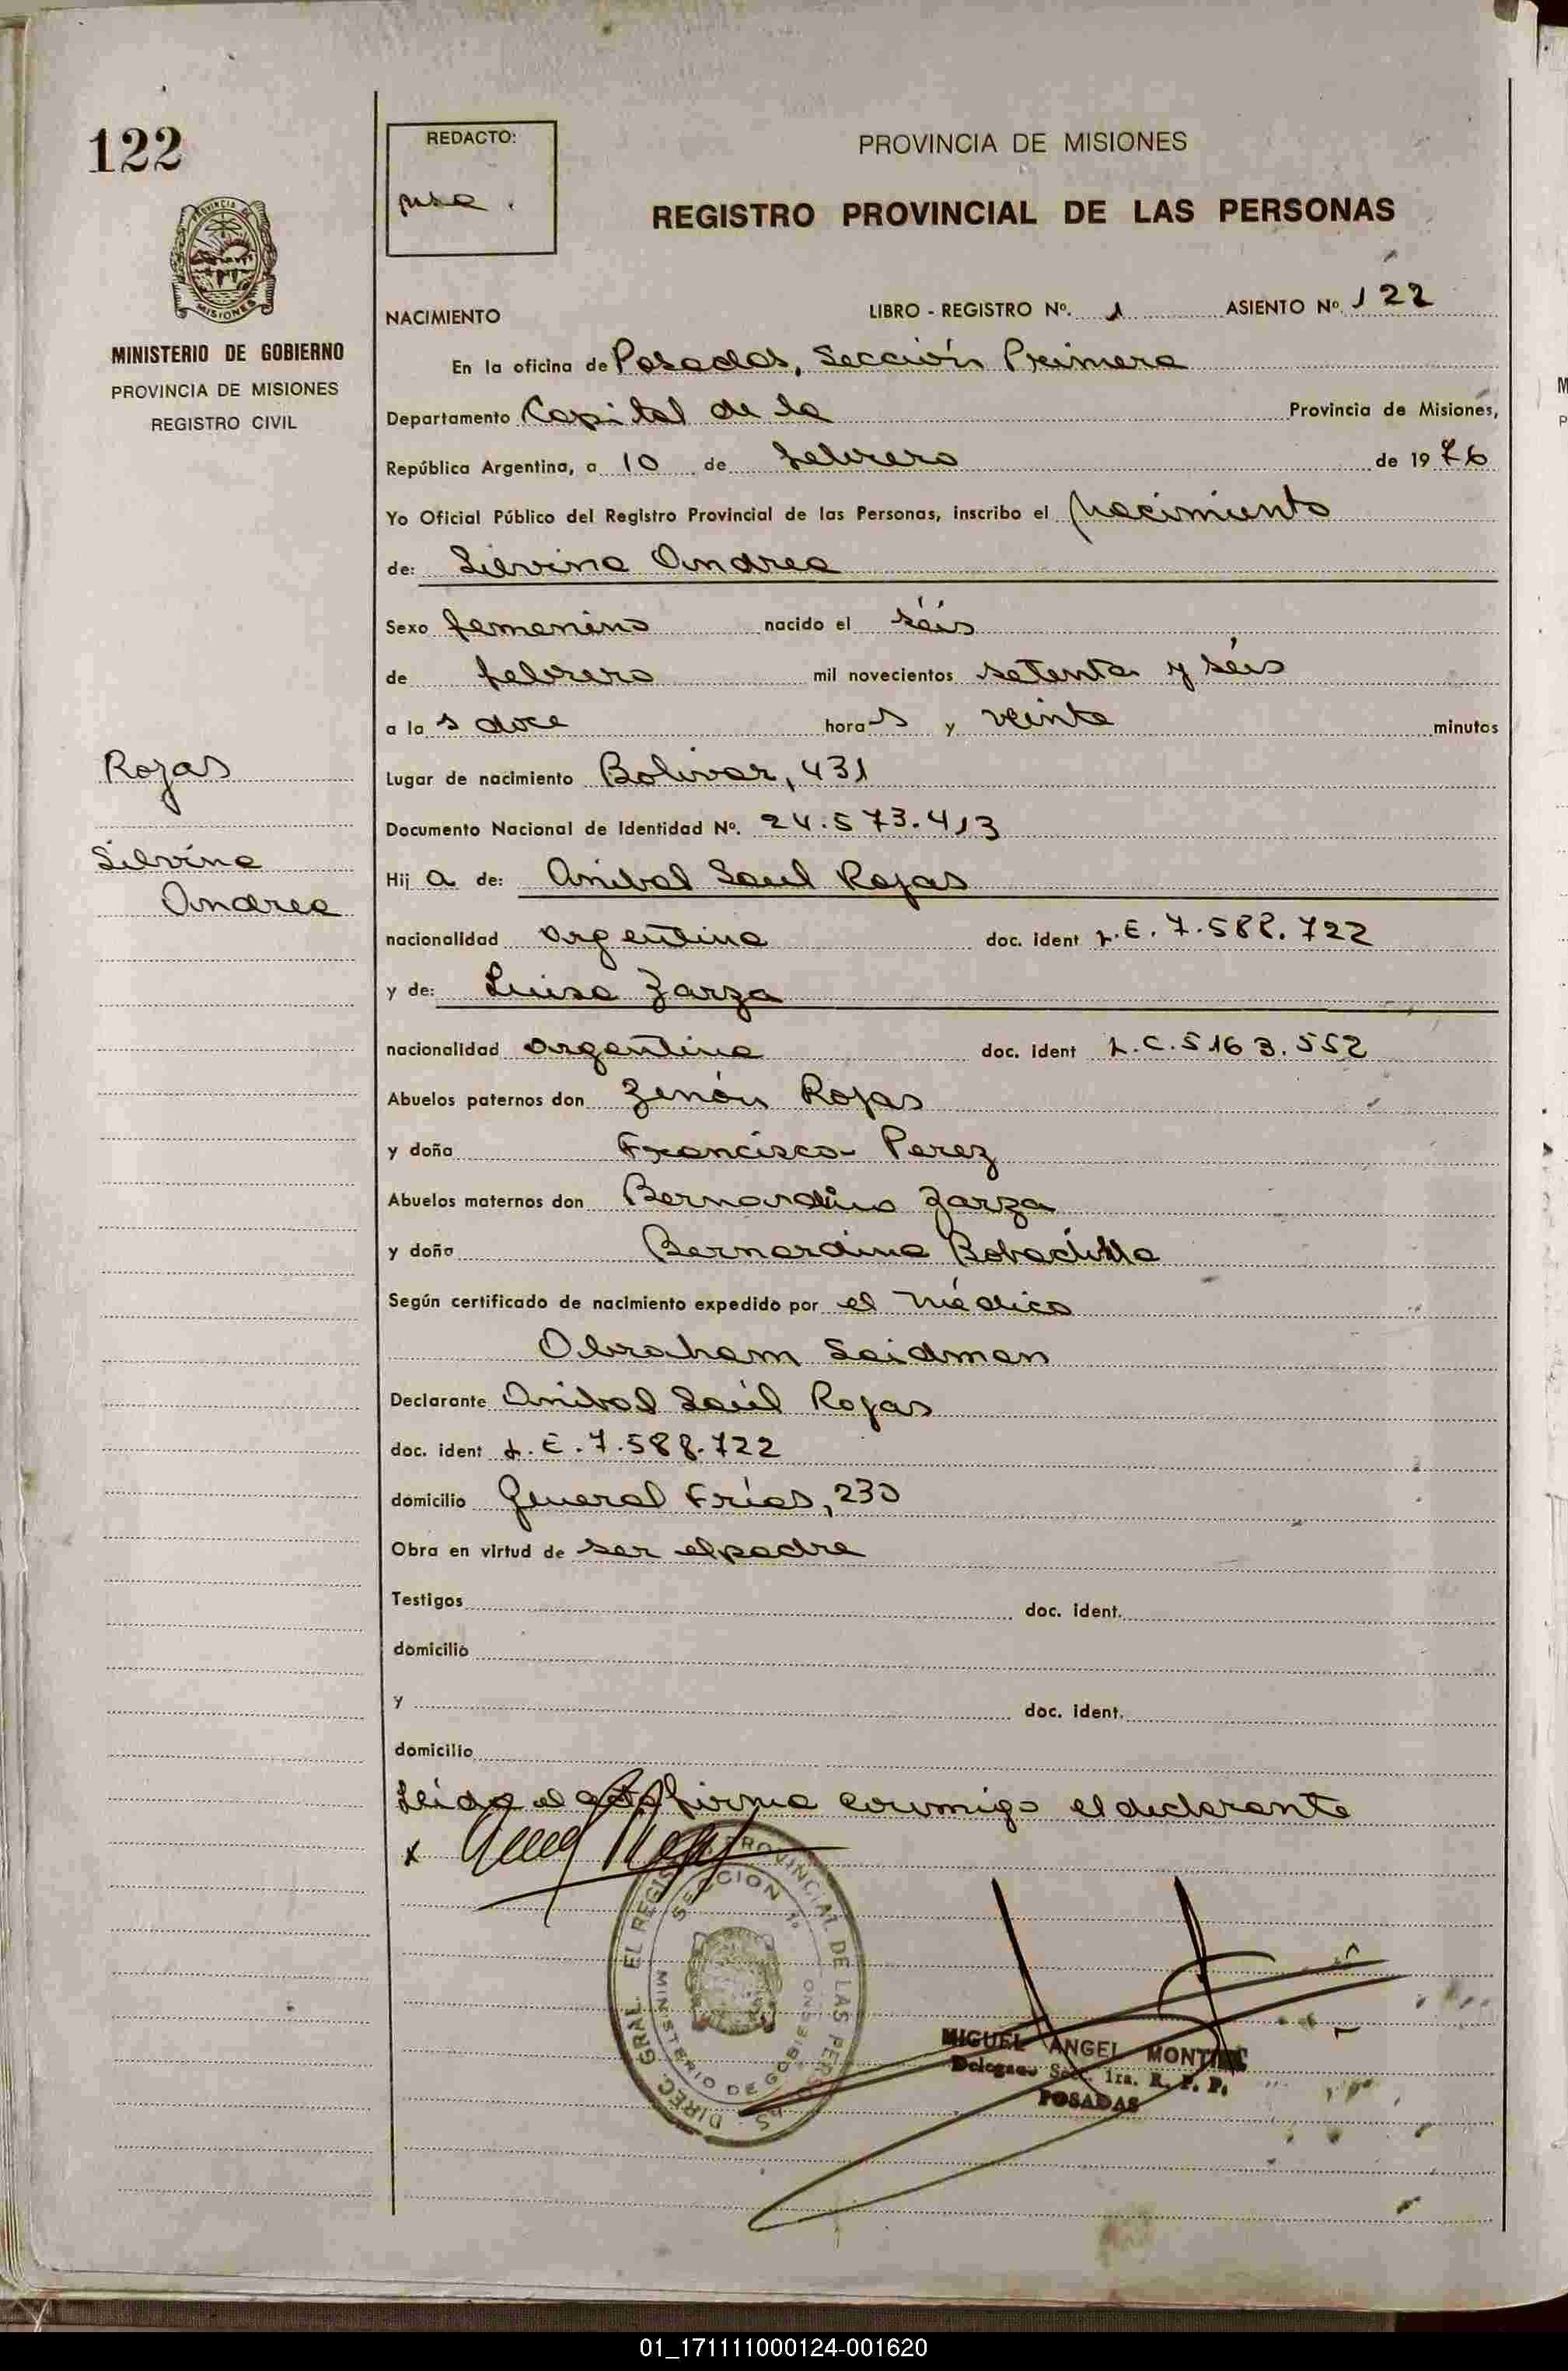 122
REDACTO:
PROVINCIA DE MISIONES
REGISTRO PROVINCIAL DE LAS PERSONAS
PROVINCIA DE
MISIONES
MINISTERIO DE GOBIERNO
PROVINCIA DE MISIONES
REGISTRO CIVIL
NACIMIENTO LIBRO - REGISTRO Nº. 1 ASIENTO Nº 122
En la oficina de Posadas, Sección Primera
Departamento Capital de la Provincia de Misiones,
República Argentina, a 10 de febrero de 1976
Yo Oficial Público del Registro Provincial de las Personas, inscribo el Nacimiento
de: Silvina Andrea
Sexo femenino nacido el séis
de febrero mil novecientos setenta y séis
a las doce horas y veinte minutos
Rojas
Silvina
Andrea
Lugar de nacimiento Bolivar, 431
Documento Nacional de Identidad Nº. 24.573.413
Hija de: Anibal Saul Rojas
nacionalidad argentina doc. ident L.E. 7.588.722
y de: Luisa Zarza
nacionalidad argentina doc. ident L.C. 5163.552
Abuelos paternos don Zenón Rojas
y doña Francisca Perez
Abuelos maternos don Bernardino Zarza
y doña Bernardina Bobadilla
Según certificado de nacimiento expedido por el médico
Abraham Saidman
Declarante Anibal Saúl Rojas
doc. ident L.E. 7.588.722
domicilio General Frías, 230
Obra en virtud de ser el padre
Testigos doc. ident.
domicilio
y doc. ident.
domicilio
Leida el acta firma conmigo el declarante
x
DIREC. GRAL. EL REGIS PROVINCIAL DE LAS PERS AS
SECCION 1º
MINISTERIO DE GOBIERNO
MIGUEL ANGEL
Delegado Secc. 1ra. R. P. P.
POSADAS
01_171111000124-001620